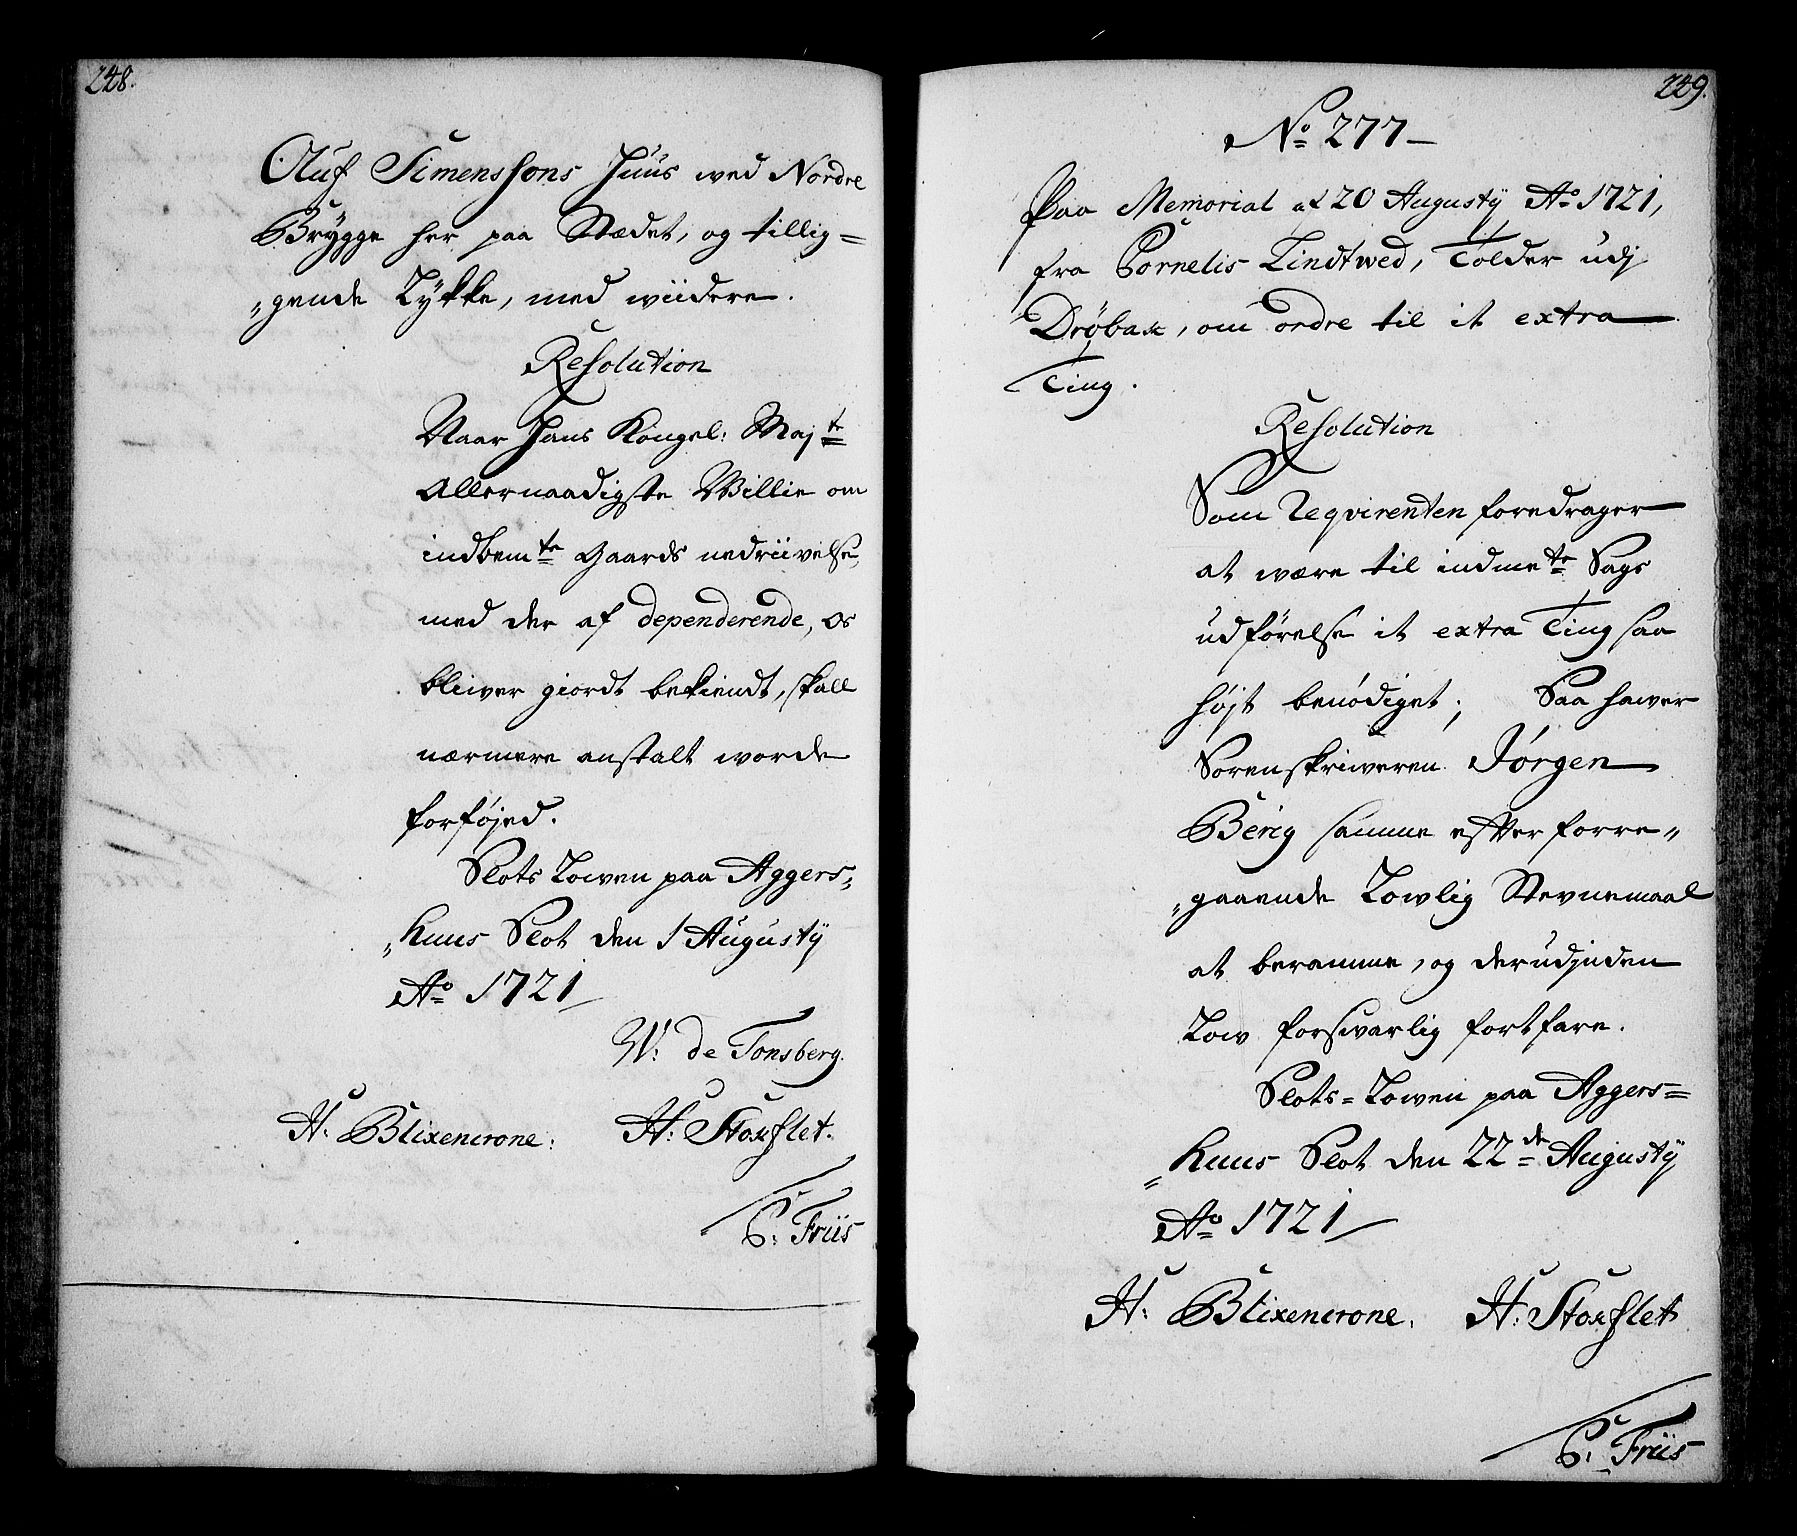 248.
Oluf Simenssons Huus wed Nordre
Brygge her paa Stædet, og tillig=
„gende Løkke, med wiidere.
Resolution
Naar Hans Kongel: Majte
Allernaadigste Willie om
indbemte Gaards nedriivelse,
med der af dependerende, os
bliiver giordt bekiendt, skall
nærmere anstalt worde
forføjed.
Slots Lowen paa Aggers„
„huus Slot den 1 Augusty
Ao 1721
W: de Tonsberg.
H: Blixencrone: H: Stockflet.
C: Friis
249.
No 277
Paa Memorial af 20 Augusty Ao 1721,
fra Cornelis Lindtwed, Tolder udj
Drøbak, om ordre til it extra
Ting.
Resolution
Som Reqvirenten foredrager
at wære til indmte Sags
udførelse it extra Ting saa
højt benødiget; Saa hawer
Sorenskriweren Jørgen
Berig samme efter forre„
„gaaende Lowlig Stevnemaal
at beramme, og derudjnden
Low forswarlig fortfare.
Slots=Lowen paa Aggers=
„huus Slot den 22de Augusty
Ao 1721
H: Blixencrone. H: Stockflet
C: Friis